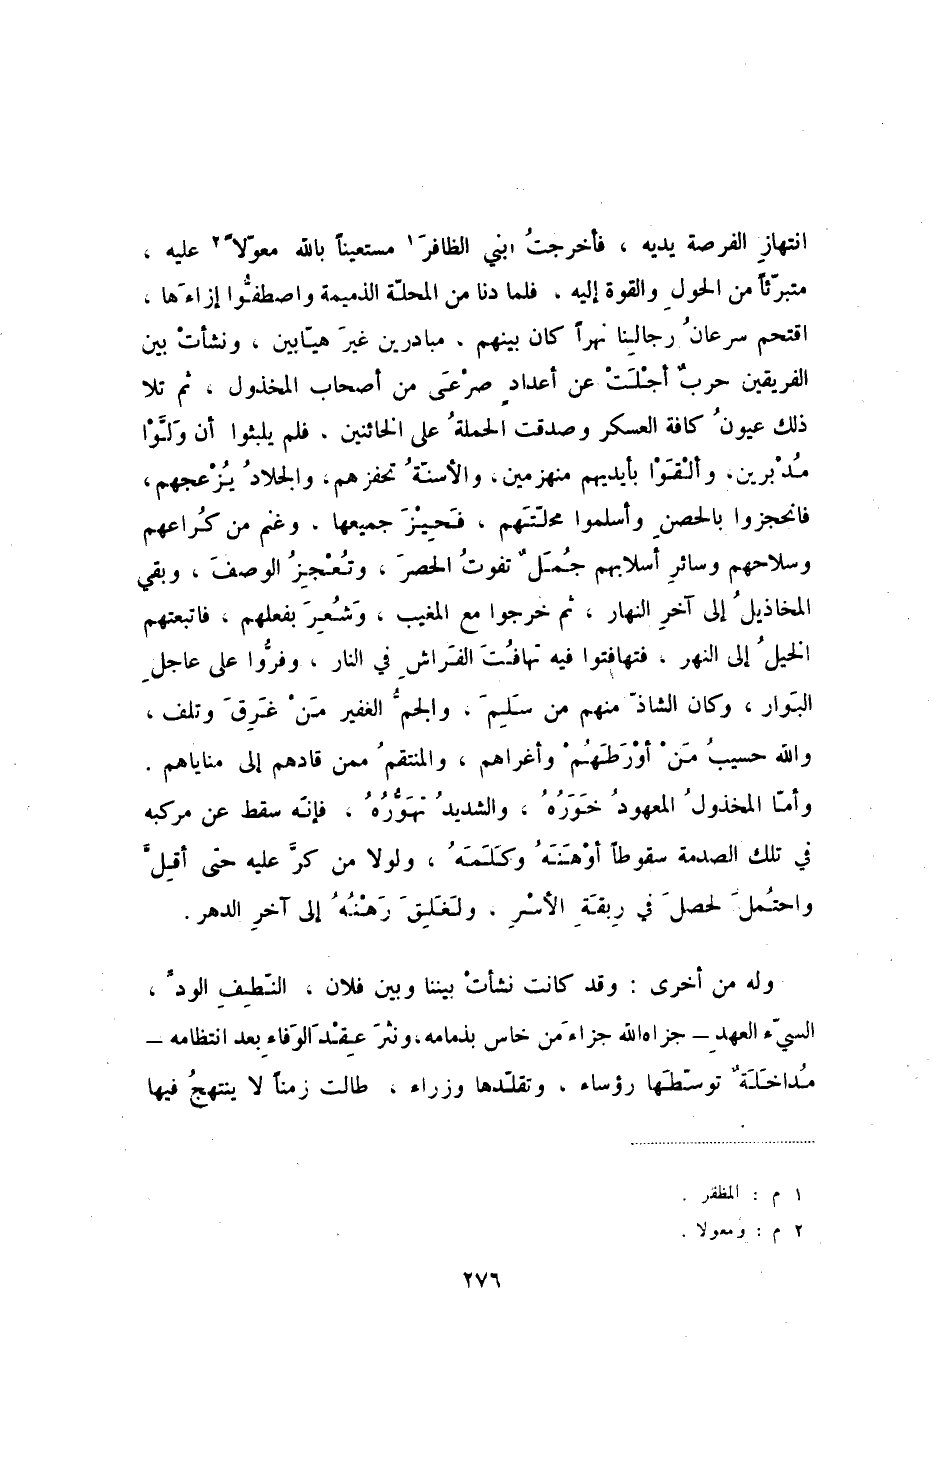 انتهازِ الفرصة يديه ، فأخرجتُ ابني الظافرَ١ مستعيناً بالله معوّلاً٢ عليه ،
متبرّئاً من الحولِ والقوة إليه . فلما دنا من المحلّة الذميمة واصطفُّوا إزاءَها ،
اقتحم سرعانُ رجالِنا نهراً كان بينهم . مبادرين غيرَ هيّابين ، ونشأتْ بين
الفريقين حربٌ أجْلَتْ عن أعدادٍ صرْعَى من أصحاب المخذول ، ثم تلا
ذلك عيونُ كافة العسكر وصدقت الحملةُ على الخائنين . فلم يلبثوا أن وَلَّوْا
مُدْبرين، وألْقَوْا بأيديهم منهزمين، والأسنّةُ تحفزهم، والجلادُ يُزْعجهم،
فانحجزوا بالحصنِ وأسلموا محلّتَهم ، فَحِيْزَ جميعها . وغنم من كُراعهم
وسلاحهم وسائرِ أسلابهم جُمَلٌ تفوتُ الحصرَ ، وتُعْجِزُ الوصفَ ، وبقي
المخاذيلُ إلى آخرِ النهار ، ثم خرجوا مع المغيب ، وَشُعِرَ بفعلهم ، فاتبعتهم
الخيلُ إلى النهر ، فتهافتوا فيه تهافُتَ الفَراشِ في النار ، وفرُّوا على عاجلِ
البَوار ، وكان الشاذّ منهم من سَلِمَ ، والجمُّ الغفير مَنْ غَرِقَ وتلف ،
والله حسيبُ مَنْ أوْرَطَهُمْ وأغراهم ، والمنتقمُ ممن قادهم إلى مناياهم .
وأمّا المخذولُ المعهودُ خَوَرُهُ ، والشديدُ تهوُّرُهُ ، فإنّه سقط عن مركبه
في تلك الصدمة سقوطاً أوْهَنَهُ وكَلَمَهُ ، ولولا من كرَّ عليه حتى أقِلَّ
واحتُملَ لحصلَ في رِبقةِ الأسْرِ . ولَغَلِقَ رَهْنُهُ إلى آخرِ الدهر .
وله من أخرى : وقد كانت نشأتْ بيننا وبين فلان ، النّطِفِ الودّ ،
السيّء العهدِ ــ جزاه الله جزاءَ من خاس بذمامه، ونثرَ عِقْدَ الوَفاءِ بعد انتظامه ــ
مُداخَلَةٌ توسّطَها رؤساء . وتقلّدها وزراء ، طالت زمناً لا ينتهجُ فيها
١ م : المظفر .
٢ م : ومعولا .
٢٧٦